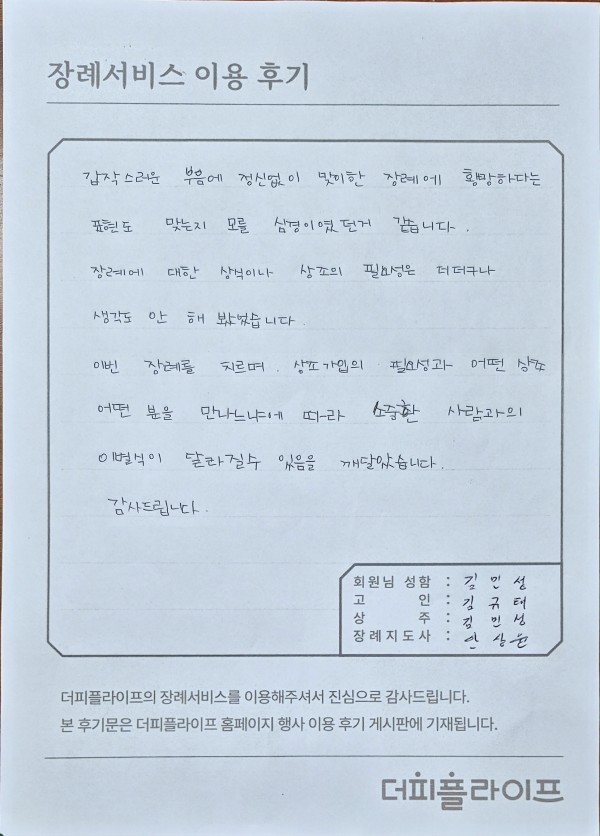 장례서비스 이용 후기
갑작스러운 부음에 정신없이 맞이한 장례에 황망하다는
표현도 맞는지 모를 심경이였던거 같습니다.
장례에 대한 상식이나 상조의 필요성은 더더구나
생각도 안 해 봤었습니다.
이번 장례를 치르며, 상조가입의 필요성과 어떤 상조
어떤 분을 만나느냐에 따라 소중한 사람과의
이별식이 달라질수 있음을 깨달았습니다.
감사드립니다.
회원님 성함 : 김민성
고 인 : 김규태
상 주 : 김민성
장례지도사 : 안상윤
더피플라이프의 장례서비스를 이용해주셔서 진심으로 감사드립니다.
본 후기문은 더피플라이프 홈페이지 행사 이용 후기 게시판에 기재됩니다.
더피플라이프